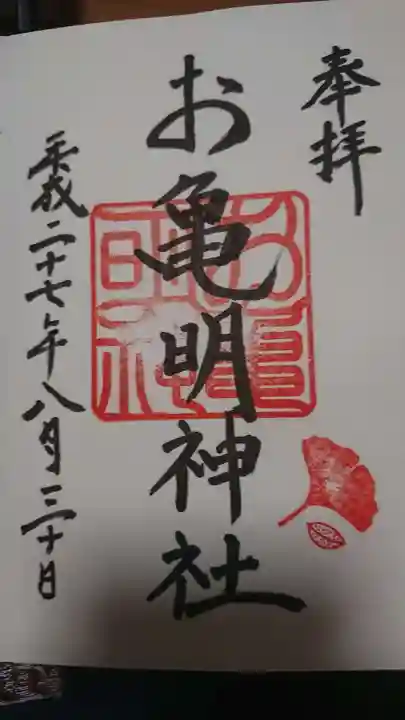 奉拝
お亀明神社
平成二十七年八月三十日